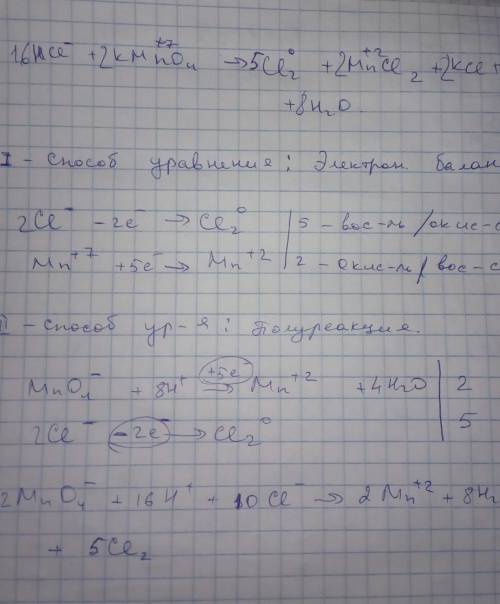 16HCl⁻ + 2KMn⁺⁷O₄ → 5Cl₂⁰ + 2Mn⁺²Cl₂ + 2KCl +
+8H₂O.
I - способ уравнения: Электрон. балан
2Cl⁻ - 2e⁻ → Cl₂⁰ | 5 - вос-ль / окис-с
Mn⁺⁷ + 5e⁻ → Mn⁺² | 2 - окис-ль / вос-с
II - способ ур-я: Полуреакция.
MnO₄⁻ + 8H⁺ +5e → Mn⁺² + 4H₂O | 2
2Cl⁻ - 2e⁻ → Cl₂⁰ | 5
2MnO₄⁻ + 16H⁺ + 10Cl⁻ → 2Mn⁺² + 8H₂
+ 5Cl₂